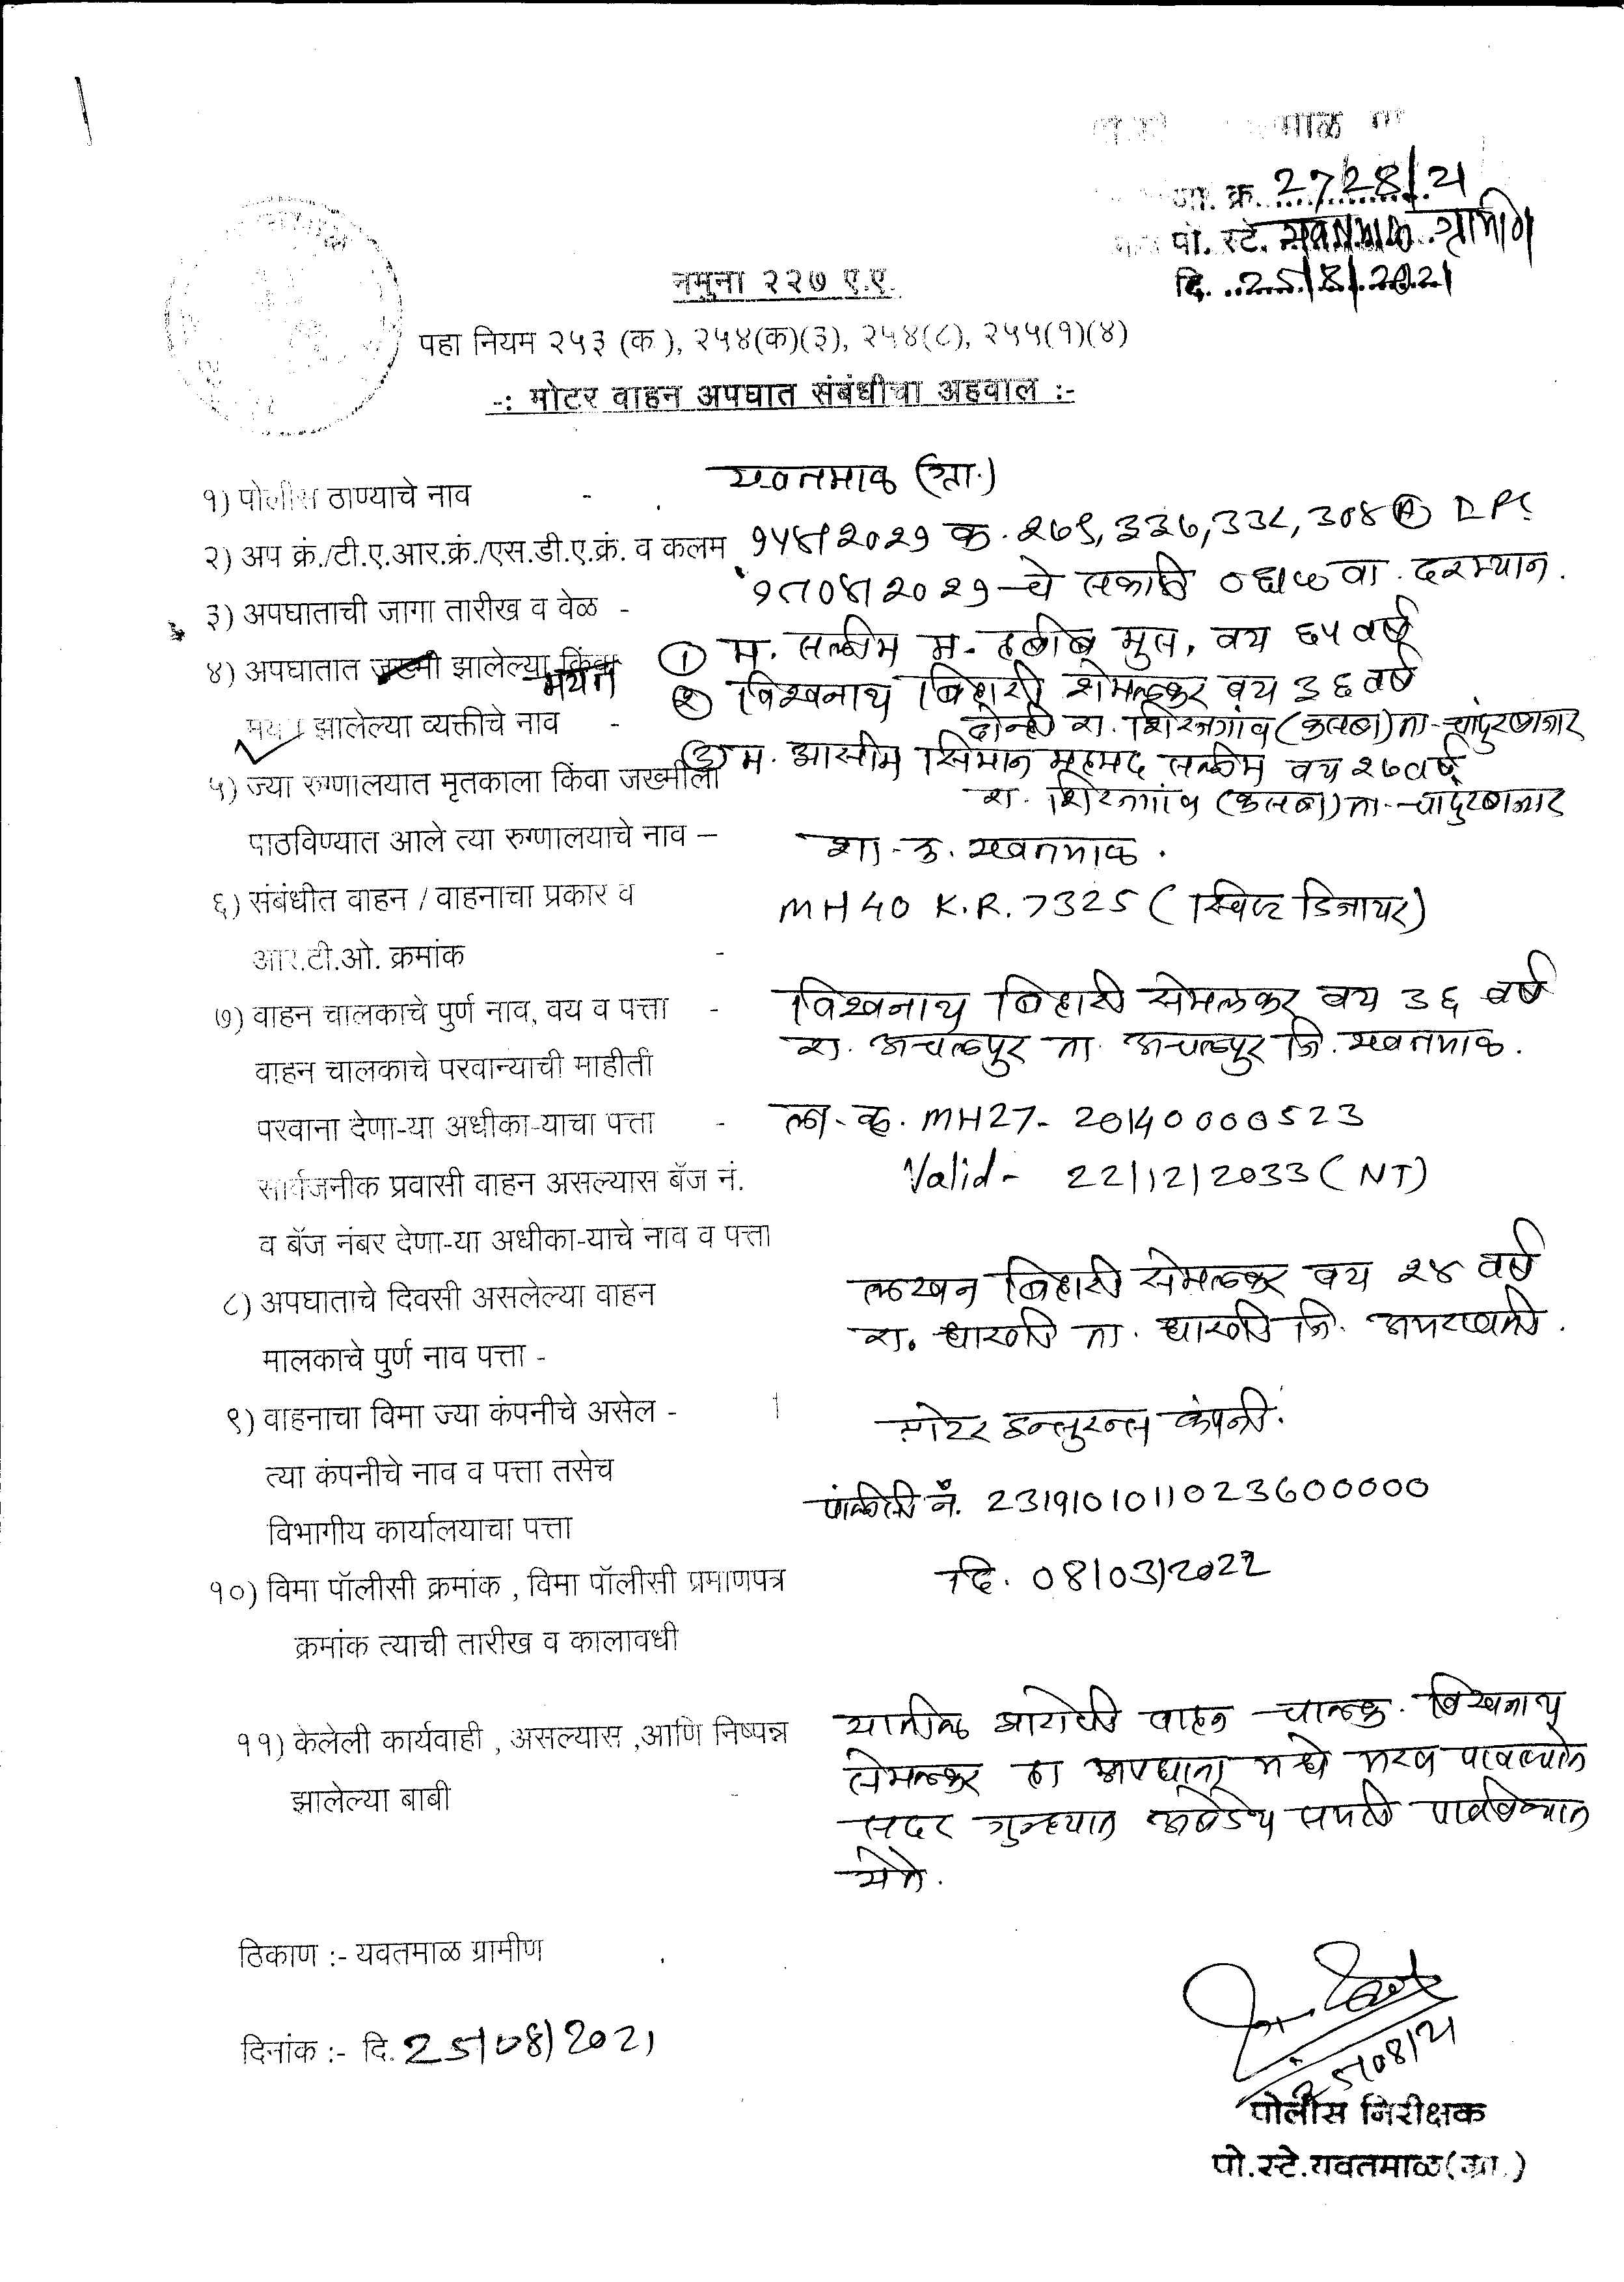 माळ
जा. क्र. 2728/21
पो. स्टे. यवतमाळ ग्रामीण
दि. 25/8/2021
नमुना २२७ ए.ए.
पहा नियम २५३ (क ), २५४(क)(३), २५४(८), २५५(१)(४)
-: मोटर वाहन अपघात संबंधीचा अहवाल :-
१) पोलीस ठाण्याचे नाव - यवतमाळ (ग्रा.)
२) अप क्रं./टी.ए.आर.क्रं./एस.डी.ए.क्रं. व कलम क. २७९, ३३७, ३३८, ३०४ (A)
३) अपघाताची जागा तारीख व वेळ - चे सकाळी वा. दरम्यान.
४) अपघातात जख्मी झालेल्या किंवा मयत ① म. सलीम म. हबीब मुस. वय ६५ वर्ष
② विश्वनाथ बिहारी सेमलकर वय ३६ वर्ष
मयत झालेल्या व्यक्तीचे नाव - दोन्ही रा. शिरजगांव (कसबा) ता-चांदुरबाजार
③ म. आसीम मुहमद सलीम वय २७ वर्ष
५) ज्या रुग्णालयात मृतकाला किंवा जख्मीला
रा. शिरजगांव (कसबा) ता-चांदुरबाजार
पाठविण्यात आले त्या रुग्णालयाचे नाव – शा. रु. यवतमाळ.
६) संबंधीत वाहन / वाहनाचा प्रकार व MH40 K.R. 7325 ( स्विप्ट डिजायर)
आर.टी.ओ. क्रमांक -
७) वाहन चालकाचे पुर्ण नाव, वय व पत्ता - विश्वनाथ बिहारी सेमलकर वय ३६ वर्ष
रा. अचलपुर ता. अचलपुर जि. यवतमाळ.
वाहन चालकाचे परवान्याची माहीती
परवाना देणा-या अधीका-याचा पत्ता - ला. क्र. MH27- 20140000523
सार्वजनीक प्रवासी वाहन असल्यास बॅज नं. Valid - 22/12/2033 (NT)
व बॅज नंबर देणा-या अधीका-याचे नाव व पत्ता
८) अपघाताचे दिवसी असलेल्या वाहन लखन बिहारी सेमलकर वय २४ वर्ष
रा. धारणी ता. धारणी जि. अमरावती.
मालकाचे पुर्ण नाव पत्ता -
९) वाहनाचा विमा ज्या कंपनीचे असेल - मोटर इन्सुरन्स कंपनी.
त्या कंपनीचे नाव व पत्ता तसेच
पॉलीसी नं. 231910101102360000​0
विभागीय कार्यालयाचा पत्ता
१०) विमा पॉलीसी क्रमांक , विमा पॉलीसी प्रमाणपत्र दि. 08/03/2022
क्रमांक त्याची तारीख व कालावधी
११) केलेली कार्यवाही , असल्यास ,आणि निष्पन्न यातील आरोपी वाहन चालक. विश्वनाथ
झालेल्या बाबी - सेमलकर हा अपघाता मध्ये मरण पावल्याने
सदर गुन्ह्यात अबेटेड समरी पाठविण्यात
येते.
ठिकाण :- यवतमाळ ग्रामीण
दिनांक :- दि. 25/08/2021
25/08/21
पोलीस निरीक्षक
पो.स्टे.यवतमाळ(ग्रा.)